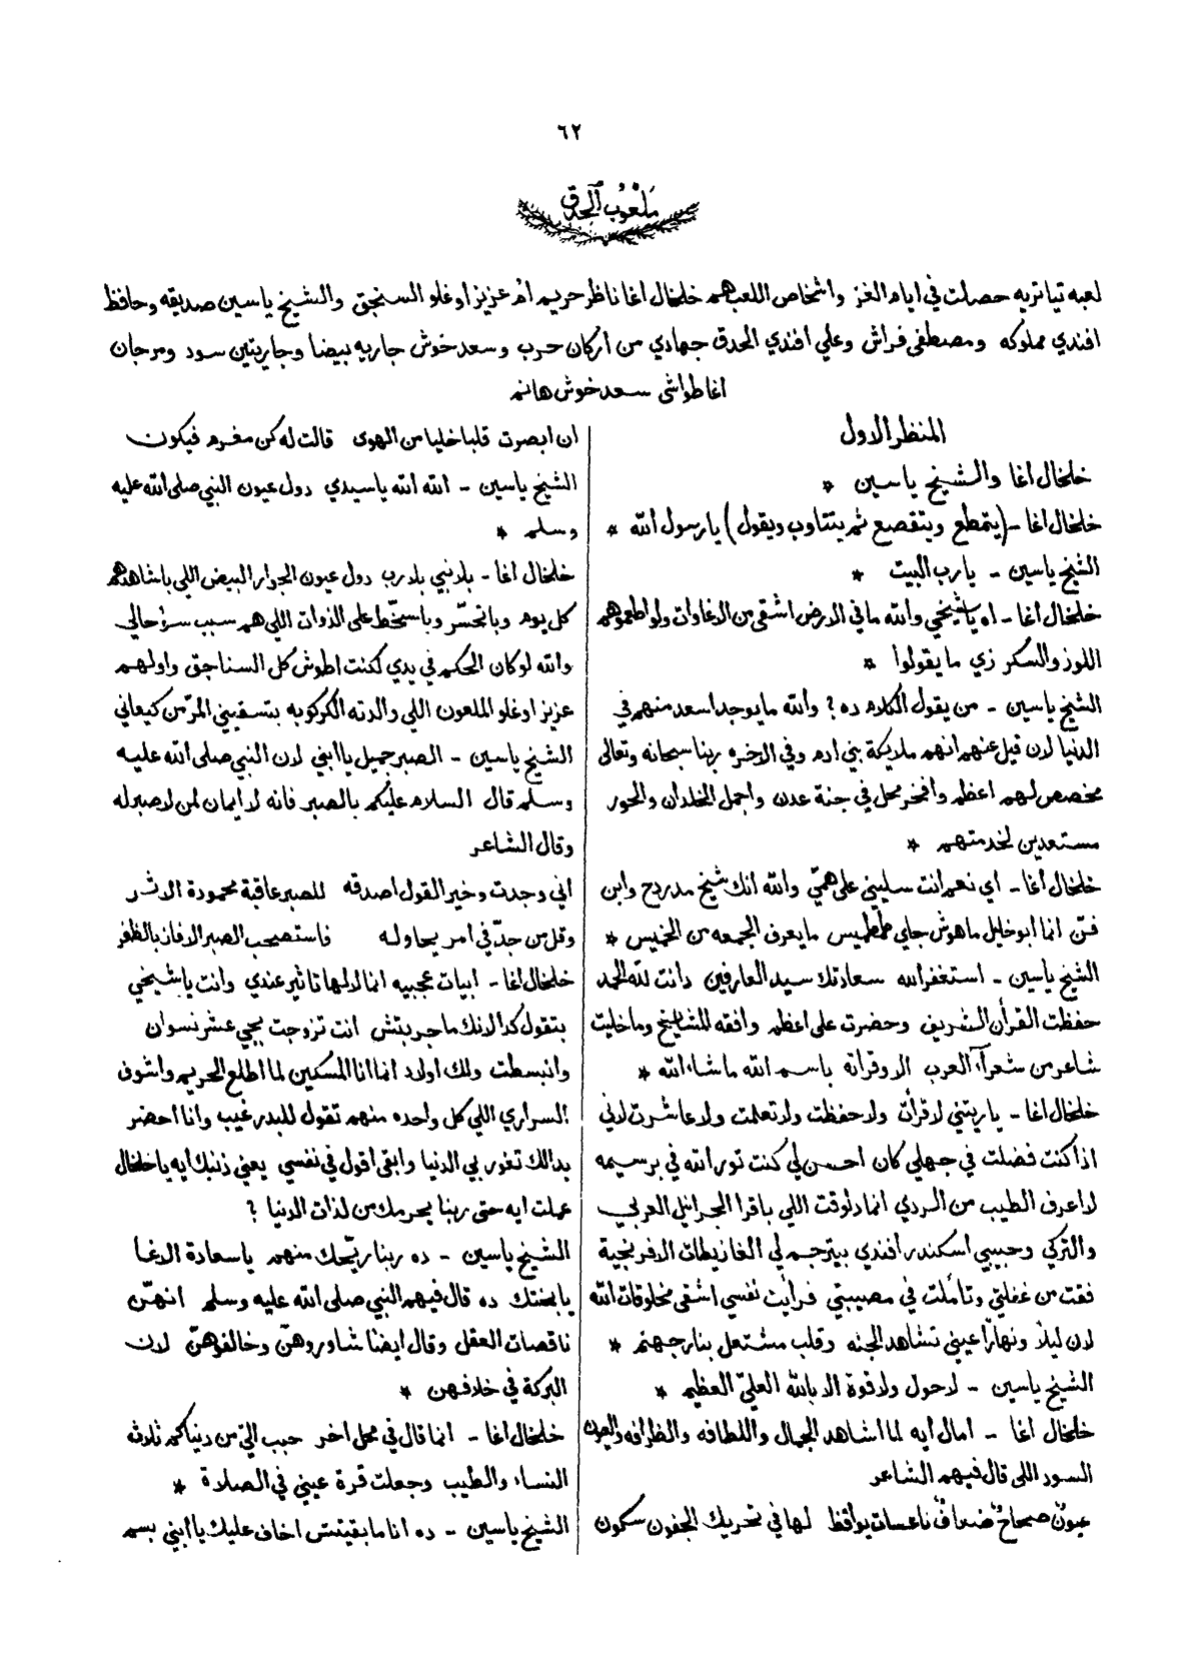 ٦٢
ملعوب الحدق
لعبه تياتريه حصلت في ايام الغز واشخاص اللعب هم خلخال اغا ناظر حريم ام عزيز اوغلو السنجق والشيخ ياسين صديقه وحافظ
افندي مملوكه ومصطفى فراش وعلي افندي الحدق جهادي من اركان حرب وسعد خوش جاريه بيضا وجاريتين سود ومرجان
اغا طواشي سعد خوش هانم
المنظر الاول
خلخال اغا والشيخ ياسين *
خلخال اغا - (يتمطع ويتقصع ثم يتتاوب ويقول) يا رسول الله *
الشيخ ياسين - يا رب البيت *
خلخال اغا - اه يا شيخي والله ما في الارض اشقى من الاغاوات ولو اطعموهم
اللوز والسكر زي ما يقولوا *
الشيخ ياسين - من يقول الكلام ده ؟ والله ما يوجد اسعد منهم في
الدنيا لان قيل عنهم انهم ملايكة بني ادم وفي الاخره ربنا سبحانه وتعالى
مخصص لهم اعظم وافخر محل في جنة عدن واجمل الخلدان والحور
مستعدين لخدمتهم *
خلخال اغا - اي نعم انت سليني على همّي والله انك شيخ مدردح وابن
فنّ انما ابو خليل ماهوش جاي طمطيس ما يعرف الجمعه من الخميس *
الشيخ ياسين - استغفر الله سعادتك سيد العارفين دانت لله الحمد
حفظت القرأن الشريف وحضرت على اعظم وافقه المشايخ وما خليت
شاعر من شعرآء العرب الا وقراته باسم الله ما شاء الله *
خلخال اغا - يا ريتني لا قرأت ولا حفظت ولا تعلمت ولا عاشرت لاني
اذا كنت فضلت في جهلي كان احسن لي كنت تور الله في برسيمه
لا اعرف الطيب من الردي انما دلوقت اللي باقرا الجرانيل العربي
والتركي وحبيبي اسكندر افندي بيترجم لي الغازيطات الافرنجية
فقت من غفلتي وتأملت في مصيبتي فرأيت نفسي اشقى مخلوقات الله
لان ليلاً ونهاراً عيني تشاهد الجنه وقلب مشتعل بنار جهنم *
الشيخ ياسين - لا حول ولا قوة الا بالله العليّ العظيم *
خلخال اغا - امال أيه لما اشاهد الجمال واللطافه والظرافه والعيون
السود اللي قال فيهم الشاعر
عيونٌ صحاحٌ ضعافٌ ناعسات يواقظ لها في تحريك الجفون سكون
ان ابصرت قلبا خليا من الهوى قالت له كن مغرم فيكون
الشيخ ياسين - الله الله يا سيدي دول عيون النبي صلى الله عليه
وسلم *
خلخال اغا - بلا نبي بلا رب دول عيون الجوار البيض اللي باشاهدهم
كل يوم وباتحسّر وباسخّط على الذوات اللي هم سبب سؤ حالي
والله لو كان الحكم في يدي لكنت اطوش كل السناجق واولهم
عزيز اوغلو الملعون اللي والدته الكركوبه بتسقيني المرّ من كيعاني
الشيخ ياسين - الصبر جميل يا ابني لان النبي صلى الله عليه
وسلم قال السلام عليكم بالصبر فانه لا ايمان لمن لا صبر له
وقال الشاعر
اني وجدت وخير القول اصدقه للصبر عاقبة محمودة الاثر
وقل من جدّ في امر يحاوله فاستصحب الصبر الا فاز بالظفر
خلخال اغا - ابيات عجيبه انما لالها تاثير عندي وانت يا شيخي
بتقول كدا لانك ما جربتش انت تزوجت بجي عشر نسوان
وانبسطت ولك اولاد انما انا المسكين لما اطلع الحريم واشوف
السراري اللي كل واحده منهم تقول للبدر غيب وانا احضر
بدالك تغور بي الدنيا وابقى اقول في نفسي يعني ذنبك ايه يا خلخال
عملت ايه حتى ربنا يحرمك من لذات الدنيا ؟
الشيخ ياسين - ده ربنا ريّحك منهم يا سعادة الاغا
يا بختك ده قال فيهم النبي صلى الله عليه وسلم انهنّ
ناقصات العقل وقال ايضا شاوروهنّ وخالفوهنّ لان
البركة في خلافهن *
خلخال اغا - انما قال في محل اخر حبب اليّ من دنياكم ثلاثه
النساء والطيب وجعلت قرة عيني في الصلاة *
الشيخ ياسين - ده انا ما بقيتش اخاف عليك يا ابني بسم